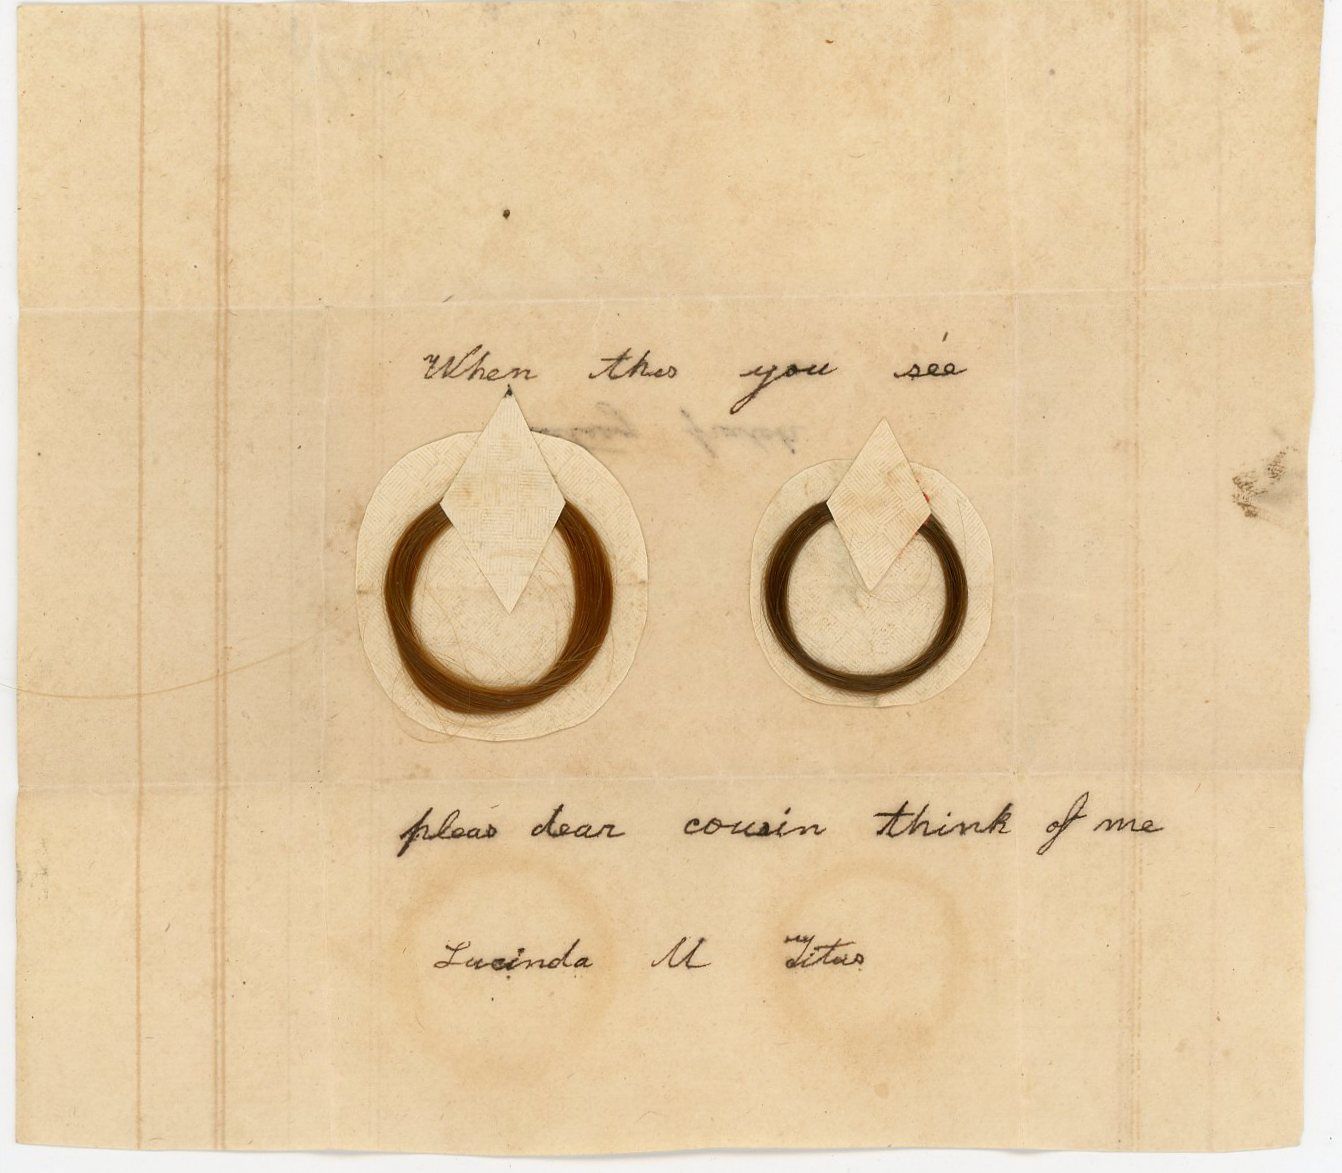 When this you see
pleas dear cousin think of me
Lucinda M Titus